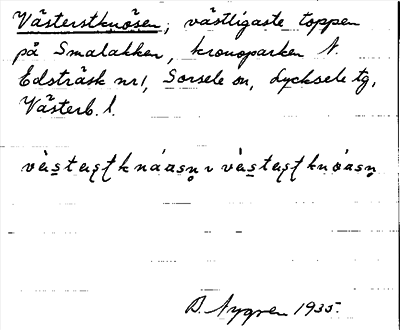 Västerstknösen, västligaste toppen
på Smalakken, kronoparken N.
Edsträsk nr 1, Sorsele sn, Lycksele tg,
Västerb. l.
D. Nygren 1935.